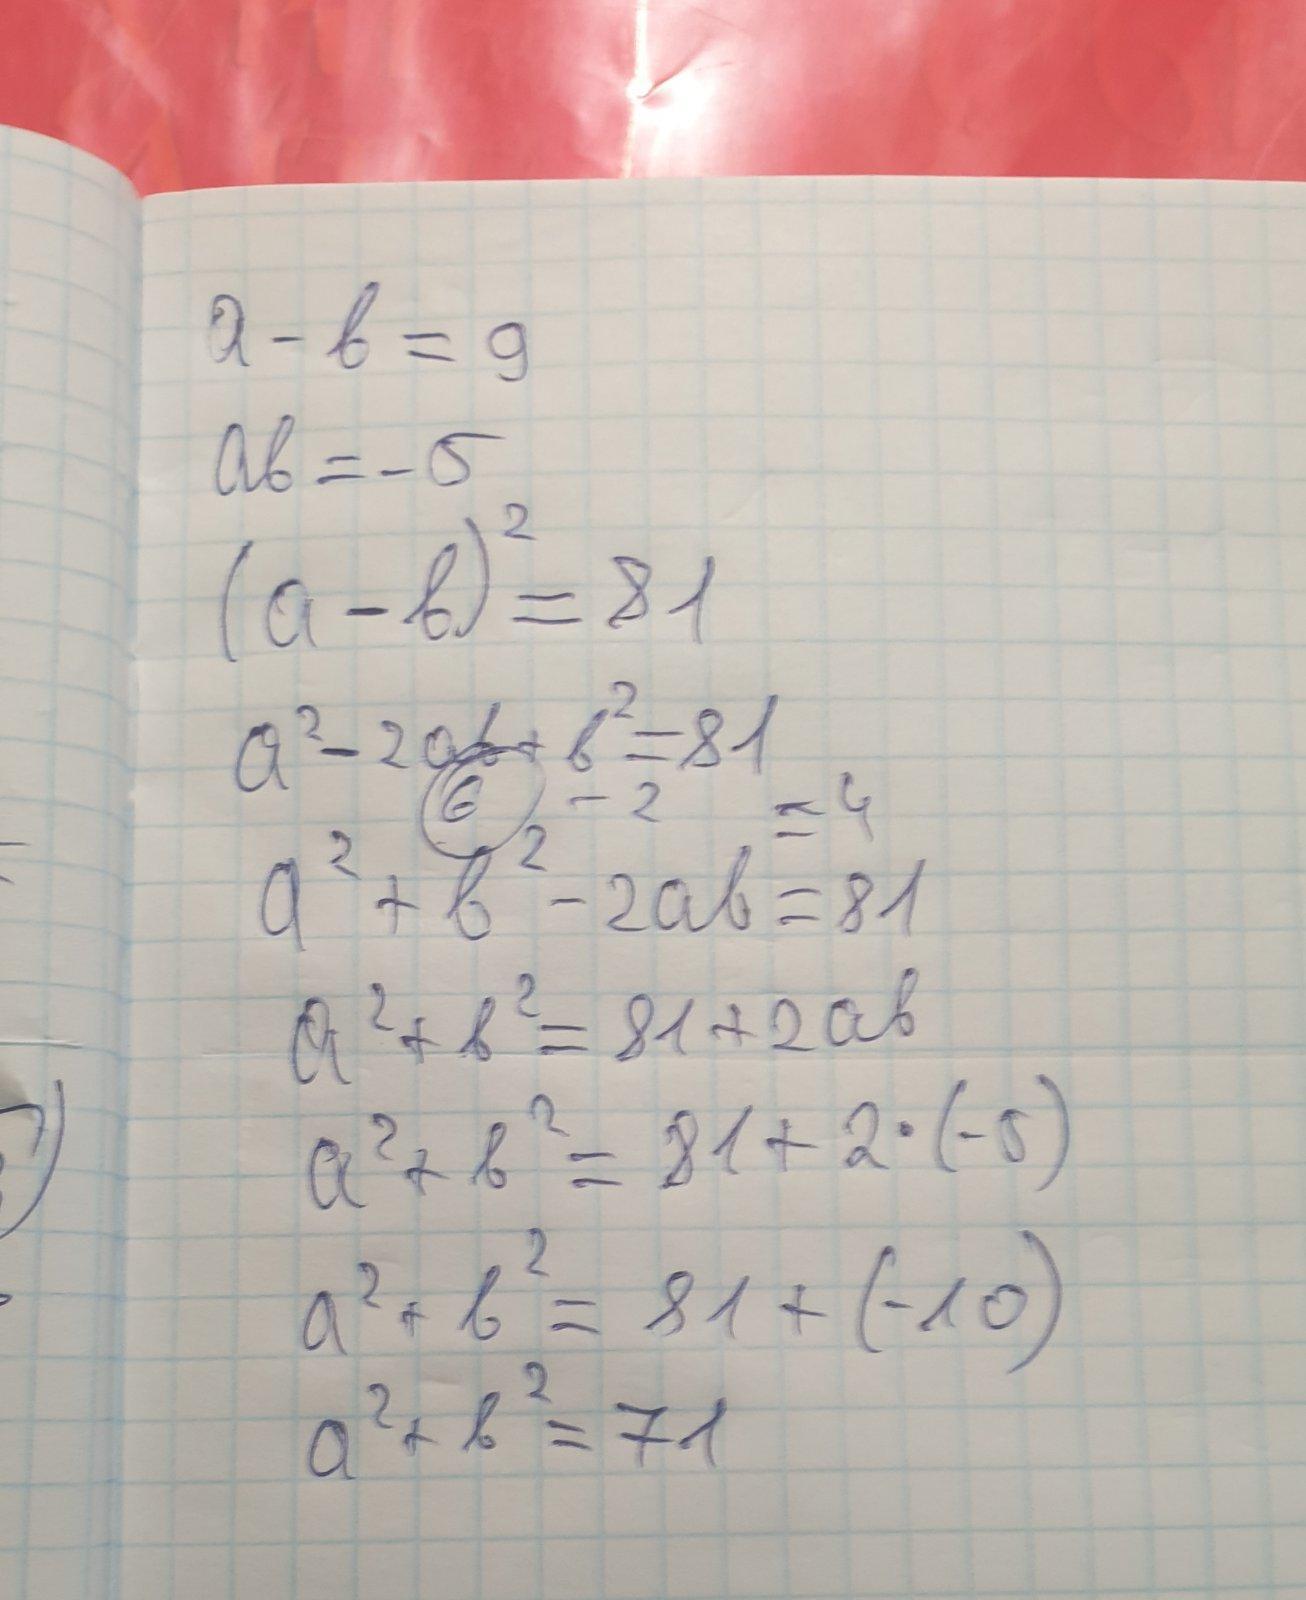 a - b = 9
ab = -5
(a - b)² = 81
a² - 2ab + b² = 81
6 - 2 = 4
a² + b² - 2ab = 81
a² + b² = 81 + 2ab
a² + b² = 81 + 2·(-5)
a² + b² = 81 + (-10)
a² + b² = 71